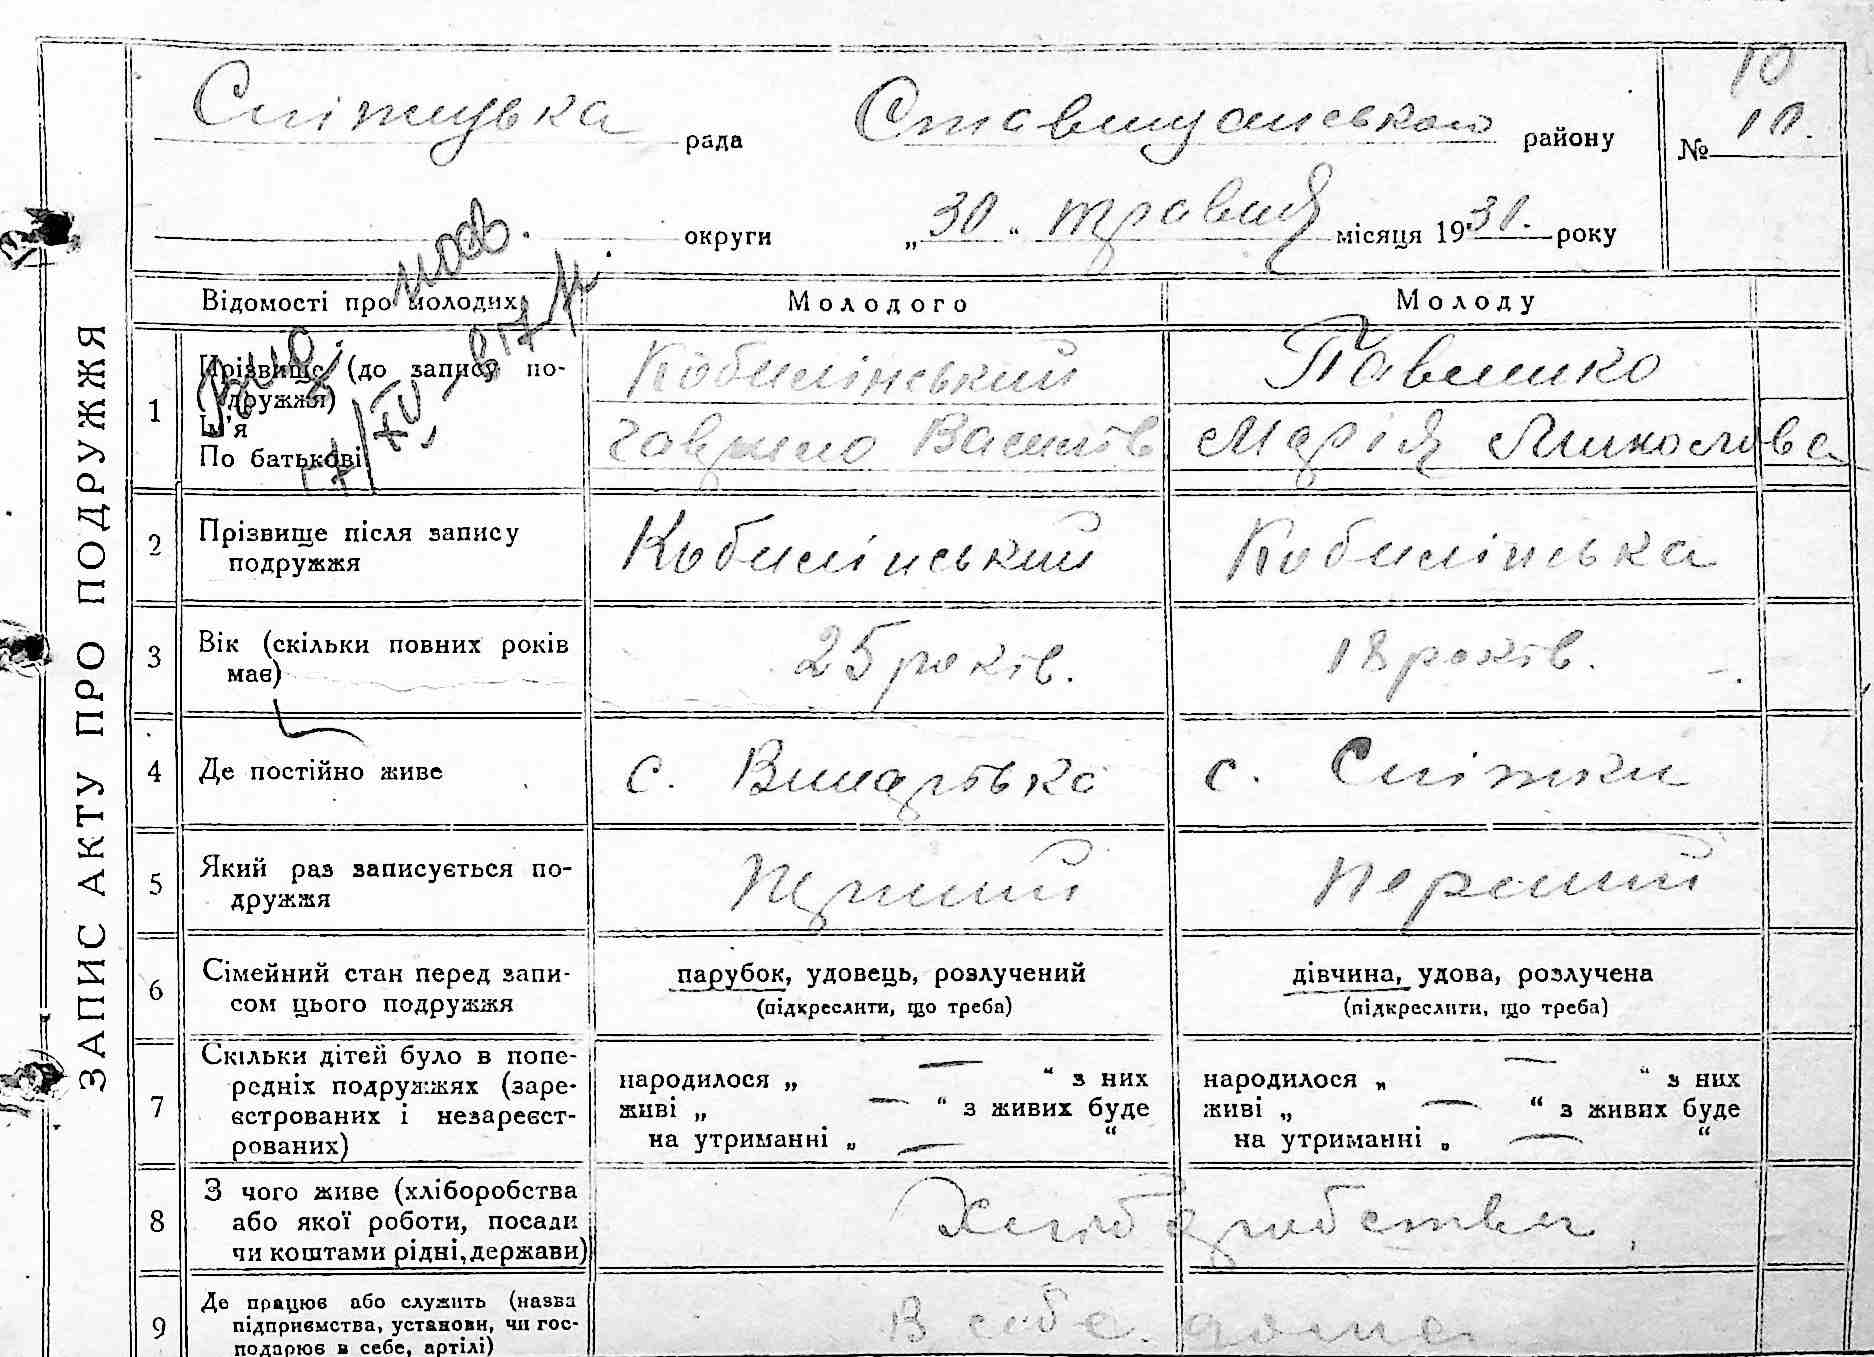 10
Сніжуцька рада Ставищанського району № 10.
округи „30“ травня місяця 1931. року
Відомості про молодих
Молодого
Молоду
ЗАПИС АКТУ ПРО ПОДРУЖЖЯ
1
Прізвище (до запису по-
дружжя)
Ім'я
По батькові
Кобилінський
Гаврило Василів
Павленко
Марія Миколова
2
Прізвище після запису
подружжя
Кобилінський
Кобилінська
3
Вік (скільки повних років
має)
25 років.
18 років.
4
Де постійно живе
с. Винарівка
с. Сніжки
5
Який раз записується по-
дружжя
Перший
Перший
6
Сімейний стан перед запи-
сом цього подружжя
парубок, удовець, розлучений
(підкреслити, що треба)
дівчина, удова, розлучена
(підкреслити, що треба)
7
Скільки дітей було в попе-
редніх подружжях (заре-
єстрованих і незареєст-
рованих)
народилося „ — “ з них
живі „ — “ з живих буде
на утриманні „ — “
народилося „ — “ з них
живі „ — “ з живих буде
на утриманні „ — “
8
З чого живе (хліборобства
або якої роботи, посади
чи коштами рідні, держави)
Хліборобства
9
Де працює або служить (назва
підприємства, установи, чи гос-
подарює в себе, артілі)
В себе дома